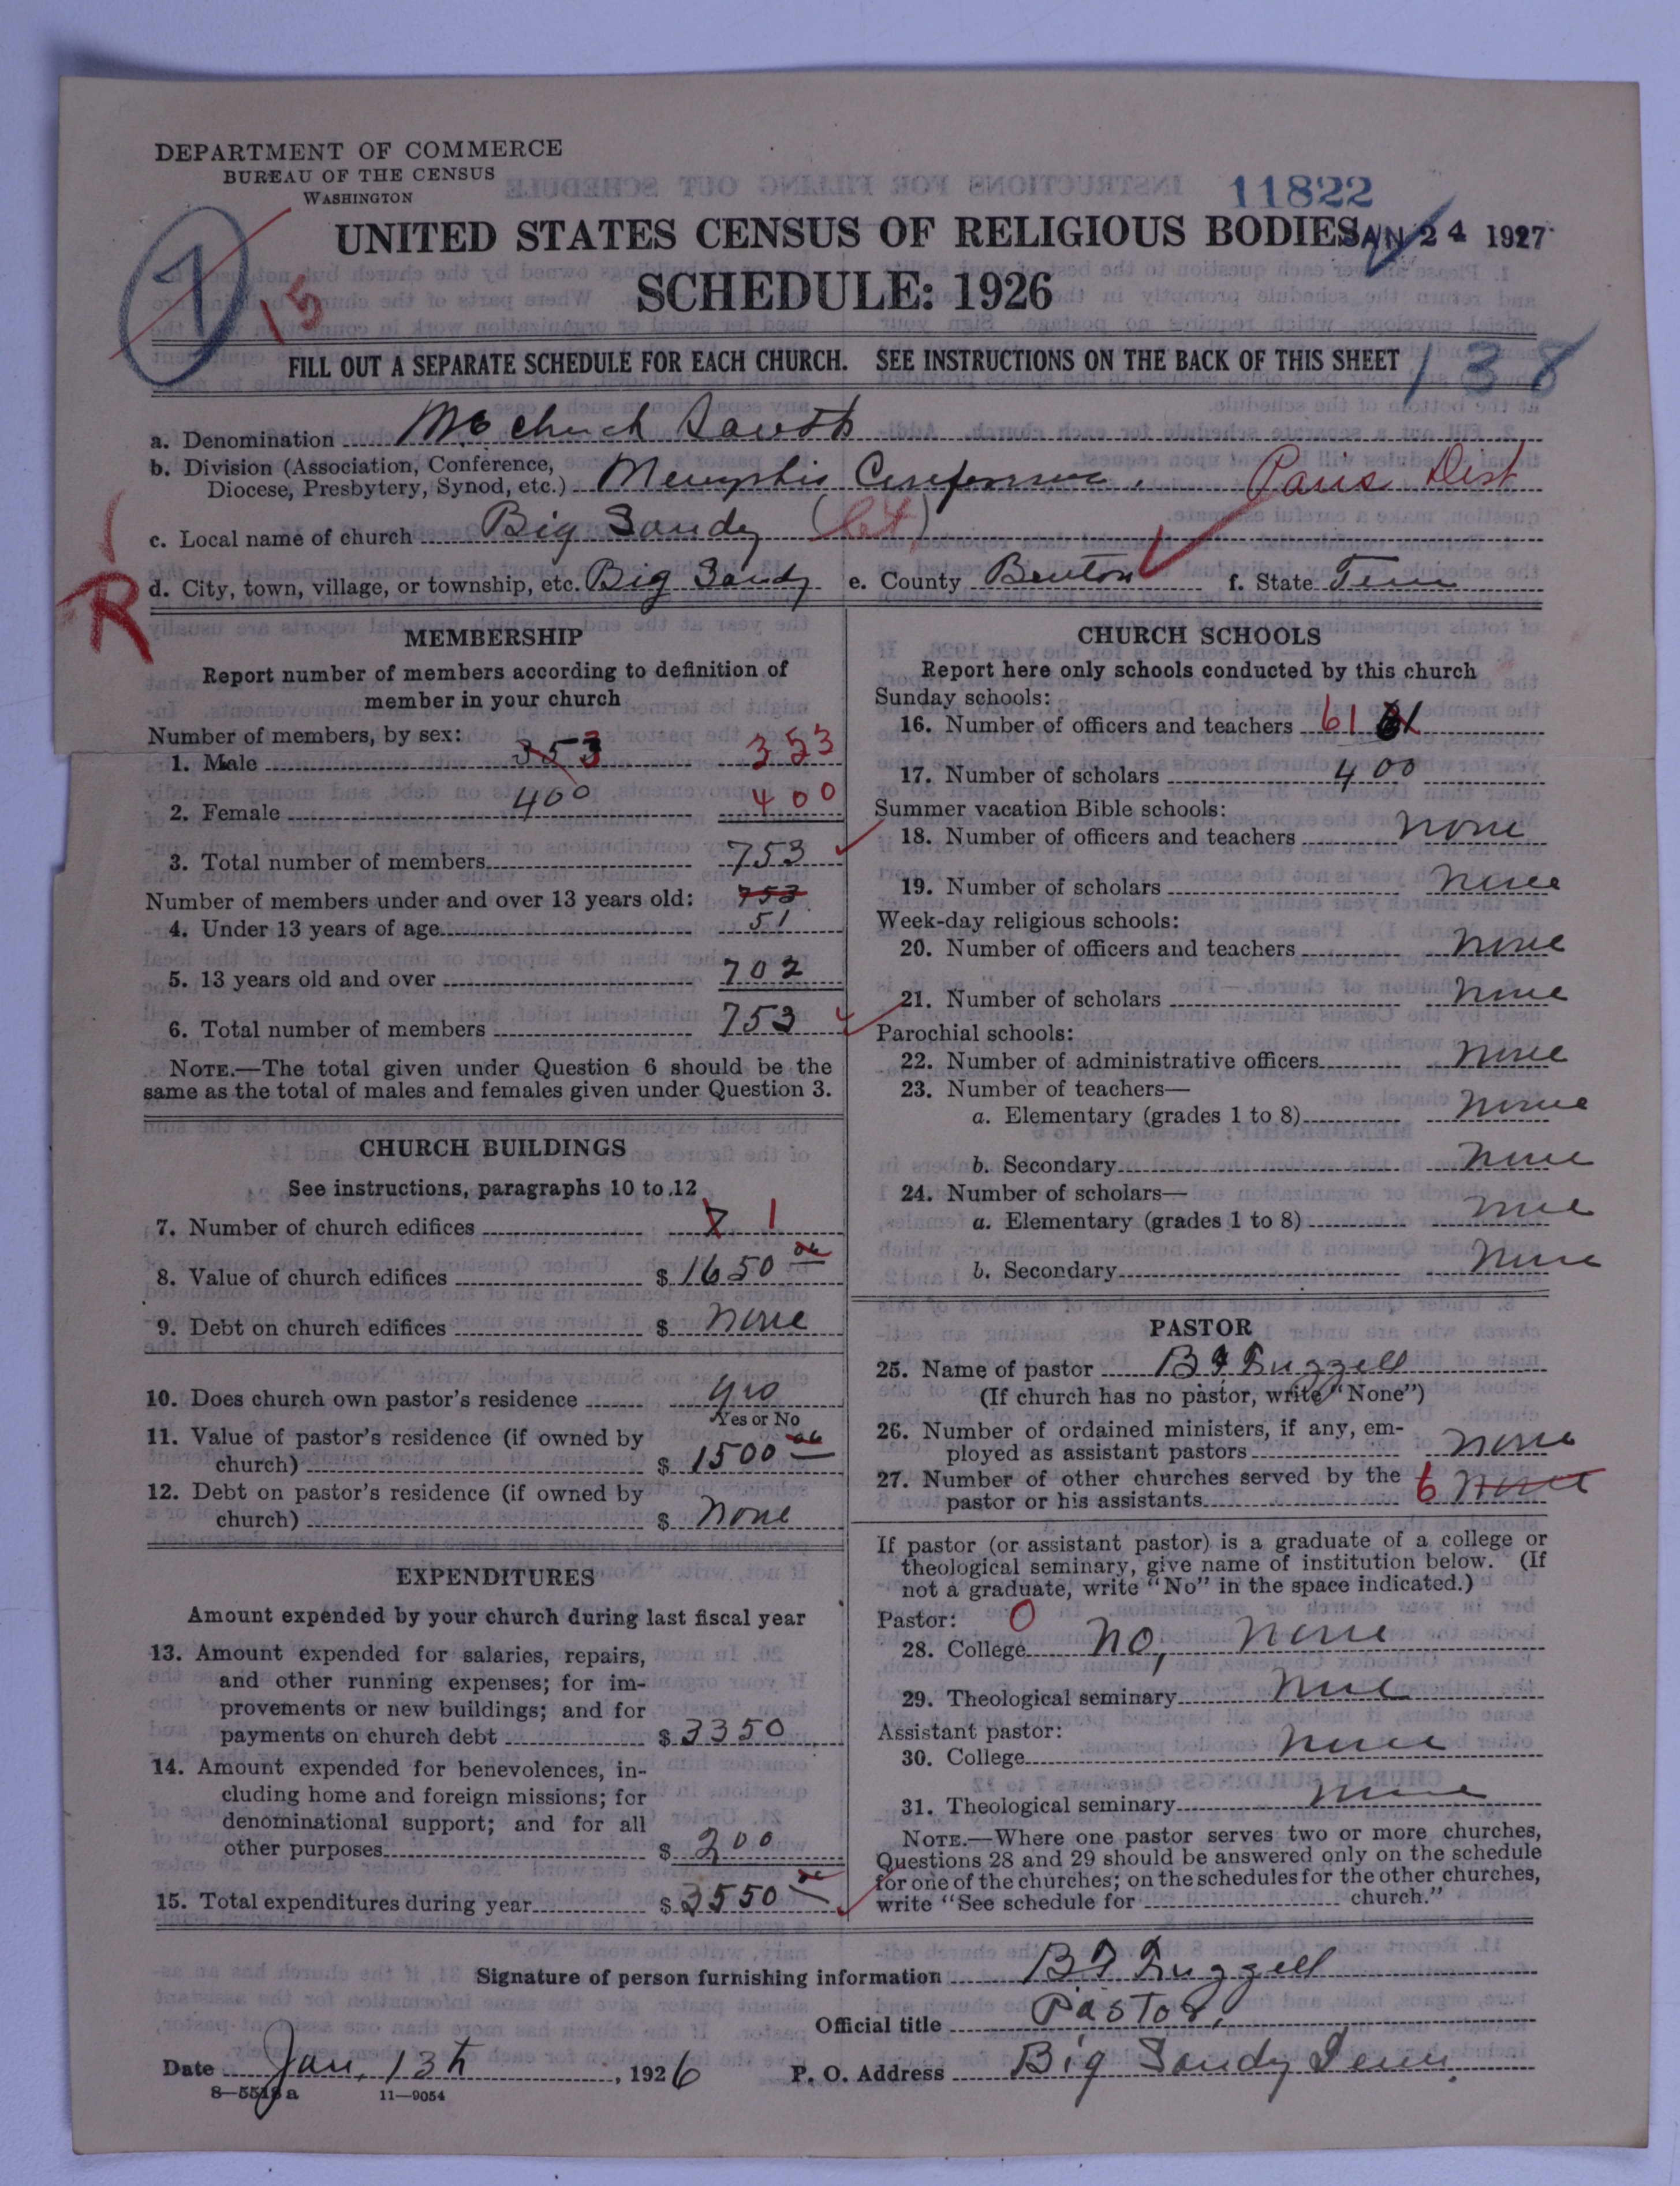 DEPARTMENT OF COMMERCE
BUREAU OF THE CENSUS
WASHINGTON
11822
UNITED STATES CENSUS OF RELIGIOUS BODIES
JAN 24 1927
SCHEDULE: 1926
1
15
FILL OUT A SEPARATE SCHEDULE FOR EACH CHURCH. SEE INSTRUCTIONS ON THE BACK OF THIS SHEET
138
a. Denomination ME Church South
b. Division (Association, Conference,
Diocese, Presbytery, Synod, etc.) Memphis Conference. Paris Dist
c. Local name of church Big Sandy (ct.)
R
d. City, town, village, or township, etc. Big Sandy e. County Benton f. State Tenn
MEMBERSHIP
Report number of members according to definition of
member in your church
Number of members, by sex:
1. Male 353 353
2. Female 400 400
3. Total number of members 753
Number of members under and over 13 years old: 753
4. Under 13 years of age 51
5. 13 years old and over 702
6. Total number of members 753
NOTE.—The total given under Question 6 should be the
same as the total of males and females given under Question 3.
CHURCH BUILDINGS
See instructions, paragraphs 10 to 12
7. Number of church edifices 7 1
8. Value of church edifices $ 1650 00
9. Debt on church edifices $ none
10. Does church own pastor's residence yes
Yes or No
11. Value of pastor's residence (if owned by
church) $ 1500 00
12. Debt on pastor's residence (if owned by
church) $ none
EXPENDITURES
Amount expended by your church during last fiscal year
13. Amount expended for salaries, repairs,
and other running expenses; for im-
provements or new buildings; and for
payments on church debt $ 3350
14. Amount expended for benevolences, in-
cluding home and foreign missions; for
denominational support; and for all
other purposes $ 200
15. Total expenditures during year $ 3550 00
CHURCH SCHOOLS
Report here only schools conducted by this church
Sunday schools:
16. Number of officers and teachers 61 61
17. Number of scholars 400
Summer vacation Bible schools:
18. Number of officers and teachers none
19. Number of scholars none
Week-day religious schools:
20. Number of officers and teachers none
21. Number of scholars none
Parochial schools:
22. Number of administrative officers none
23. Number of teachers—
a. Elementary (grades 1 to 8) none
b. Secondary none
24. Number of scholars—
a. Elementary (grades 1 to 8) none
b. Secondary none
PASTOR
25. Name of pastor B F Fuzzell
(If church has no pastor, write "None")
26. Number of ordained ministers, if any, em-
ployed as assistant pastors none
27. Number of other churches served by the
pastor or his assistants 6 none
If pastor (or assistant pastor) is a graduate of a college or
theological seminary, give name of institution below. (If
not a graduate, write "No" in the space indicated.)
Pastor: 0
28. College no, none
29. Theological seminary none
Assistant pastor:
30. College none
31. Theological seminary none
NOTE.—Where one pastor serves two or more churches,
Questions 28 and 29 should be answered only on the schedule
for one of the churches; on the schedules for the other churches,
write "See schedule for church."
Signature of person furnishing information B F Fuzzell
Official title Pastor,
Date Jan, 13th, 1926 P. O. Address Big Sandy Tenn.
8—5518 a 11—9054